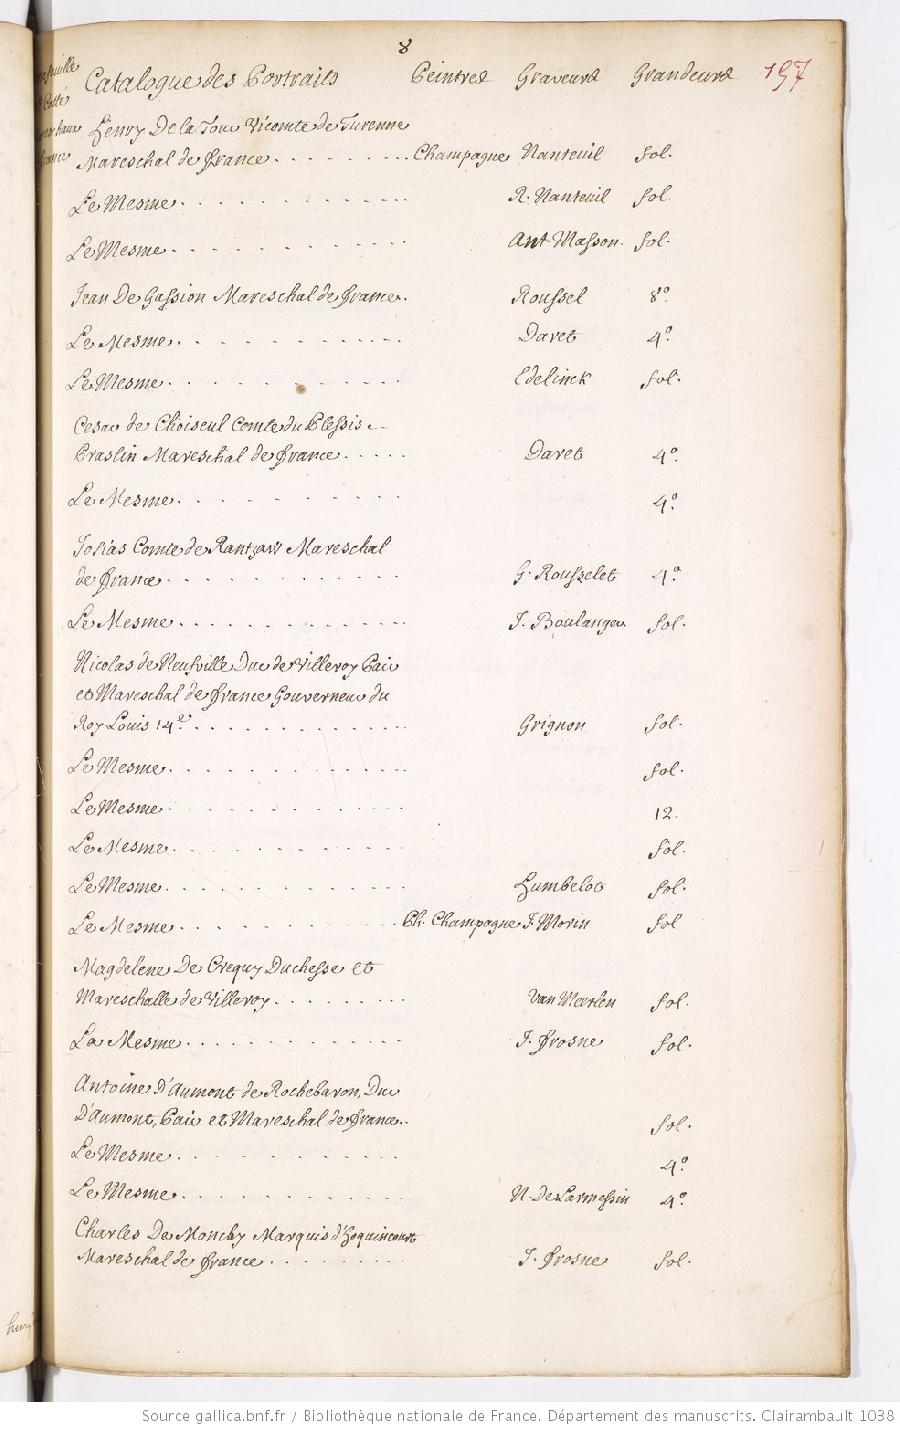 8
Catalogue des Portraits Peintres Graveurs Grandeurs 197
Henry De la Tour Vicomte de Turenne
Mareschal de france . . . . . . . . Champagne Nanteuil fol.
Le Mesme . . . . . . . . . . R. Nanteuil fol.
Le Mesme . . . . . . . . . . Ant Masson. fol.
Jean De Gassion Mareschal de france. Roussel 8.º
Le Mesme . . . . . . . . . . Daret 4.º
Le Mesme . . . . . . . . . . Edelinck fol.
Cesar de Choiseul Comte du Plessis
Praslin Mareschal de france . . . . . Daret 4.º
Le Mesme . . . . . . . . . . 4.º
Josias Comte de Rantzaw Mareschal
de france . . . . . . . . . . G. Rousselet 4.º
Le Mesme . . . . . . . . . . J. Boulanger fol.
Nicolas de Neufville Duc de Villeroy Pair
et Mareschal de france Gouverneur du
Roy Louis 14.e . . . . . . . . . . Grignon fol.
Le Mesme . . . . . . . . . . fol.
Le Mesme . . . . . . . . . . 12.
Le Mesme . . . . . . . . . . fol.
Le Mesme . . . . . . . . . . Humbelot fol.
Le Mesme . . . . . . . . . . Ph. Champagne J. Morin fol
Magdelene De Crequy Duchesse et
Mareschalle de Villeroy . . . . . . . . Van Merlen fol.
La Mesme . . . . . . . . . . J. frosne fol.
Antoine D'Aumont de Rochebaron, Duc
D'aumont, Pair et Mareschal de france . . fol.
Le Mesme . . . . . . . . . . 4.º
Le Mesme . . . . . . . . . . N. De Larmessin 4.º
Charles De Monchy Marquis d'hoquincourt
Mareschal de france . . . . . . . . J. frosne fol.
Source gallica.bnf.fr / Bibliothèque nationale de France. Département des manuscrits. Clairambault 1038